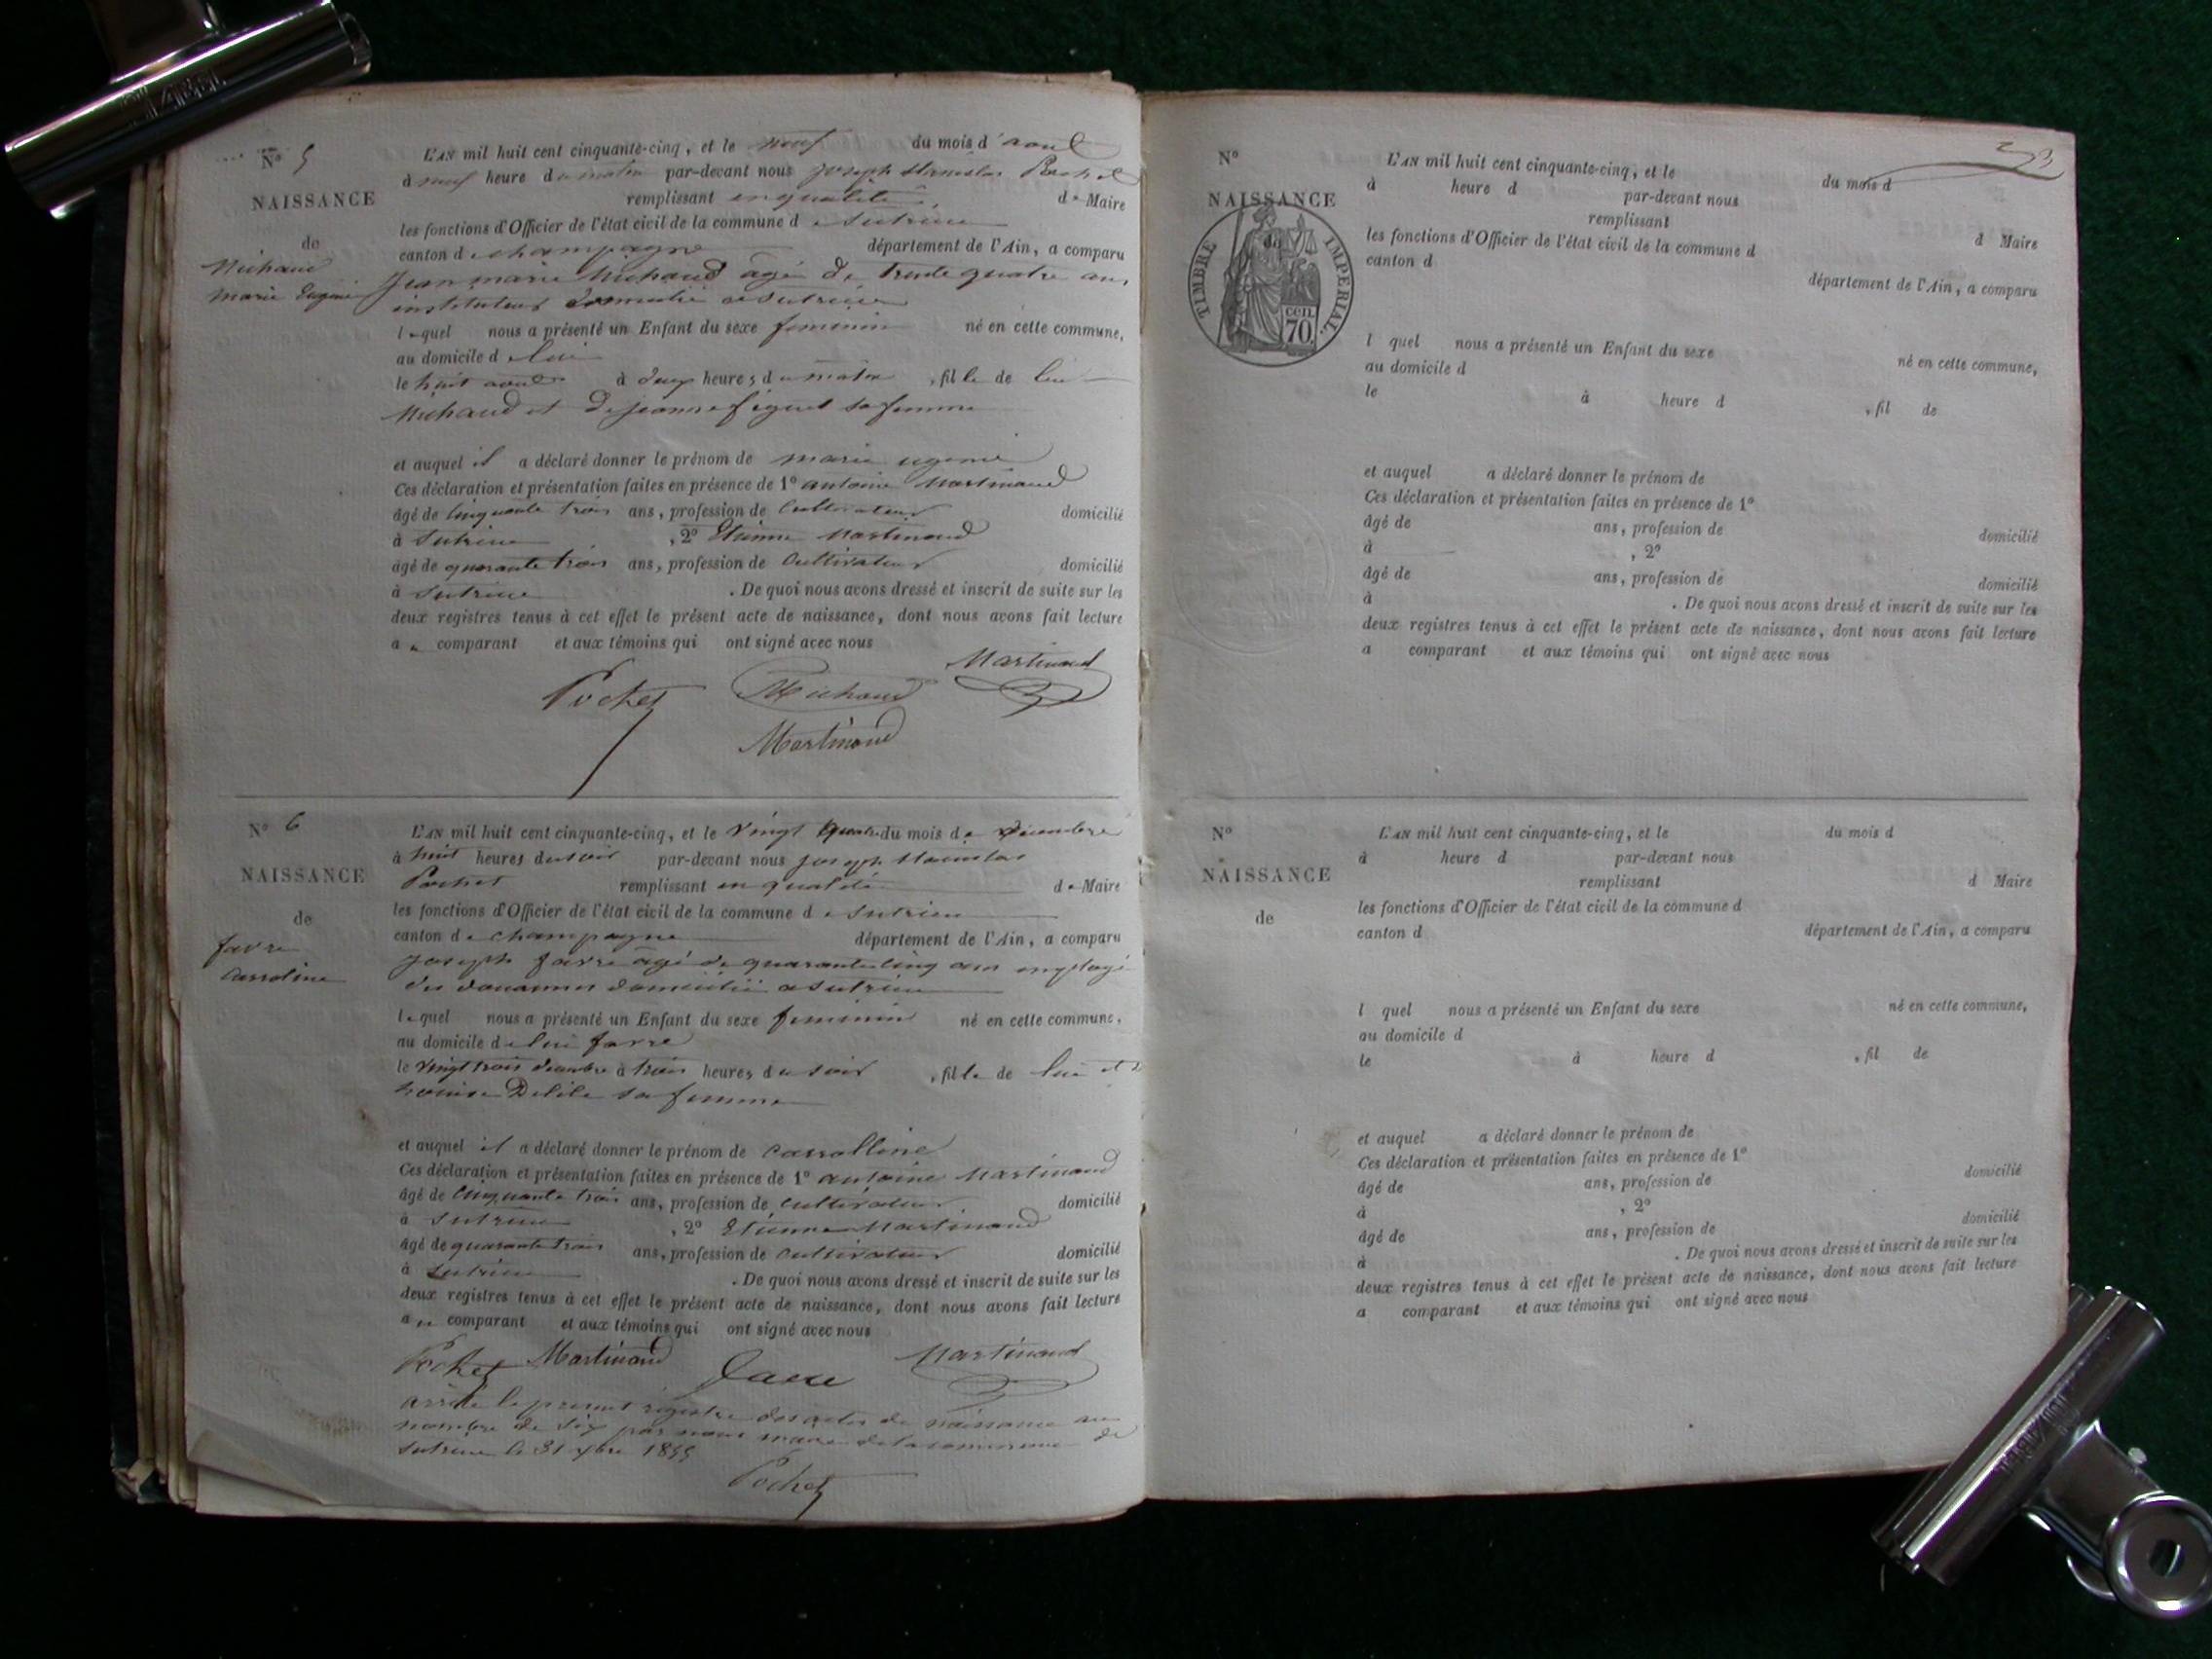 N° 5
NAISSANCE
de
Michaud
marie Eugenie
L'AN mil huit cent cinquante-cinq, et le neuf du mois d'aout
à neuf heure du matin par-devant nous joseph stanislas Pochet
remplissant en qualité de Maire
les fonctions d'Officier de l'état civil de la commune de sutrieu
canton de champagne département de l'Ain, a comparu
jean marie Michaud âgé de trente quatre ans
instituteur domicilié a sutrieu
lequel nous a présenté un Enfant du sexe feminin né en cette commune,
au domicile de lui
le huit aout à deux heures du matin, fille de lui
Michaud et de jeanne figuet sa femme
et auquel il a déclaré donner le prénom de marie ugenie
Ces déclaration et présentation faites en présence de 1° antoine Martinaud
âgé de cinquante trois ans, profession de Cultivateur domicilié
à sutrieu, 2° Etienne Martinaud
âgé de quarante trois ans, profession de Cultivateur domicilié
à sutrieu. De quoi nous avons dressé et inscrit de suite sur les
deux registres tenus à cet effet le présent acte de naissance, dont nous avons fait lecture
au comparant et aux témoins qui ont signé avec nous
Pochet Michaud Martinaud
Martinaud
N° 6
NAISSANCE
de
favre
Carroline
L'AN mil huit cent cinquante-cinq, et le vingt quatre du mois de decembre
à huit heures du soir par-devant nous joseph stanislas
Pochet remplissant en qualité de Maire
les fonctions d'Officier de l'état civil de la commune de sutrieu
canton de champagne département de l'Ain, a comparu
joseph favre âgé de quarante cinq ans employé
des douannes domicilié a sutrieu
lequel nous a présenté un Enfant du sexe feminin né en cette commune,
au domicile de lui favre
le vingt trois decembre à trois heures du soir, fille de lui et
Louise Delile sa femme
et auquel il a déclaré donner le prénom de carrolline
Ces déclaration et présentation faites en présence de 1° antoine Martinaud
âgé de cinquante trois ans, profession de cultivateur domicilié
à sutrieu, 2° Etienne Martinaud
âgé de quarante trois ans, profession de cultivateur domicilié
à sutrieu. De quoi nous avons dressé et inscrit de suite sur les
deux registres tenus à cet effet le présent acte de naissance, dont nous avons fait lecture
au comparant et aux témoins qui ont signé avec nous
Pochet Martinaud favre Martinaud
arrete le present registre des actes de naissance au
nombre de six par nous maire de la commune de
sutrieu le 31 xbre 1855
Pochet
N°
NAISSANCE
de
TIMBRE IMPERIAL.
cen.
70.
L'AN mil huit cent cinquante-cinq, et le du mois d
à heure d par-devant nous
remplissant d Maire
les fonctions d'Officier de l'état civil de la commune d
canton d département de l'Ain, a comparu
l quel nous a présenté un Enfant du sexe né en cette commune,
au domicile d
le à heure d, fil de
et auquel a déclaré donner le prénom de
Ces déclaration et présentation faites en présence de 1°
âgé de ans, profession de domicilié
à, 2°
âgé de ans, profession de domicilié
à. De quoi nous avons dressé et inscrit de suite sur les
deux registres tenus à cet effet le présent acte de naissance, dont nous avons fait lecture
a comparant et aux témoins qui ont signé avec nous
N°
NAISSANCE
de
L'AN mil huit cent cinquante-cinq, et le du mois d
à heure d par-devant nous
remplissant d Maire
les fonctions d'Officier de l'état civil de la commune d
canton d département de l'Ain, a comparu
l quel nous a présenté un Enfant du sexe né en cette commune,
au domicile d
le à heure d, fil de
et auquel a déclaré donner le prénom de
Ces déclaration et présentation faites en présence de 1°
âgé de ans, profession de domicilié
à, 2°
âgé de ans, profession de domicilié
à. De quoi nous avons dressé et inscrit de suite sur les
deux registres tenus à cet effet le présent acte de naissance, dont nous avons fait lecture
a comparant et aux témoins qui ont signé avec nous